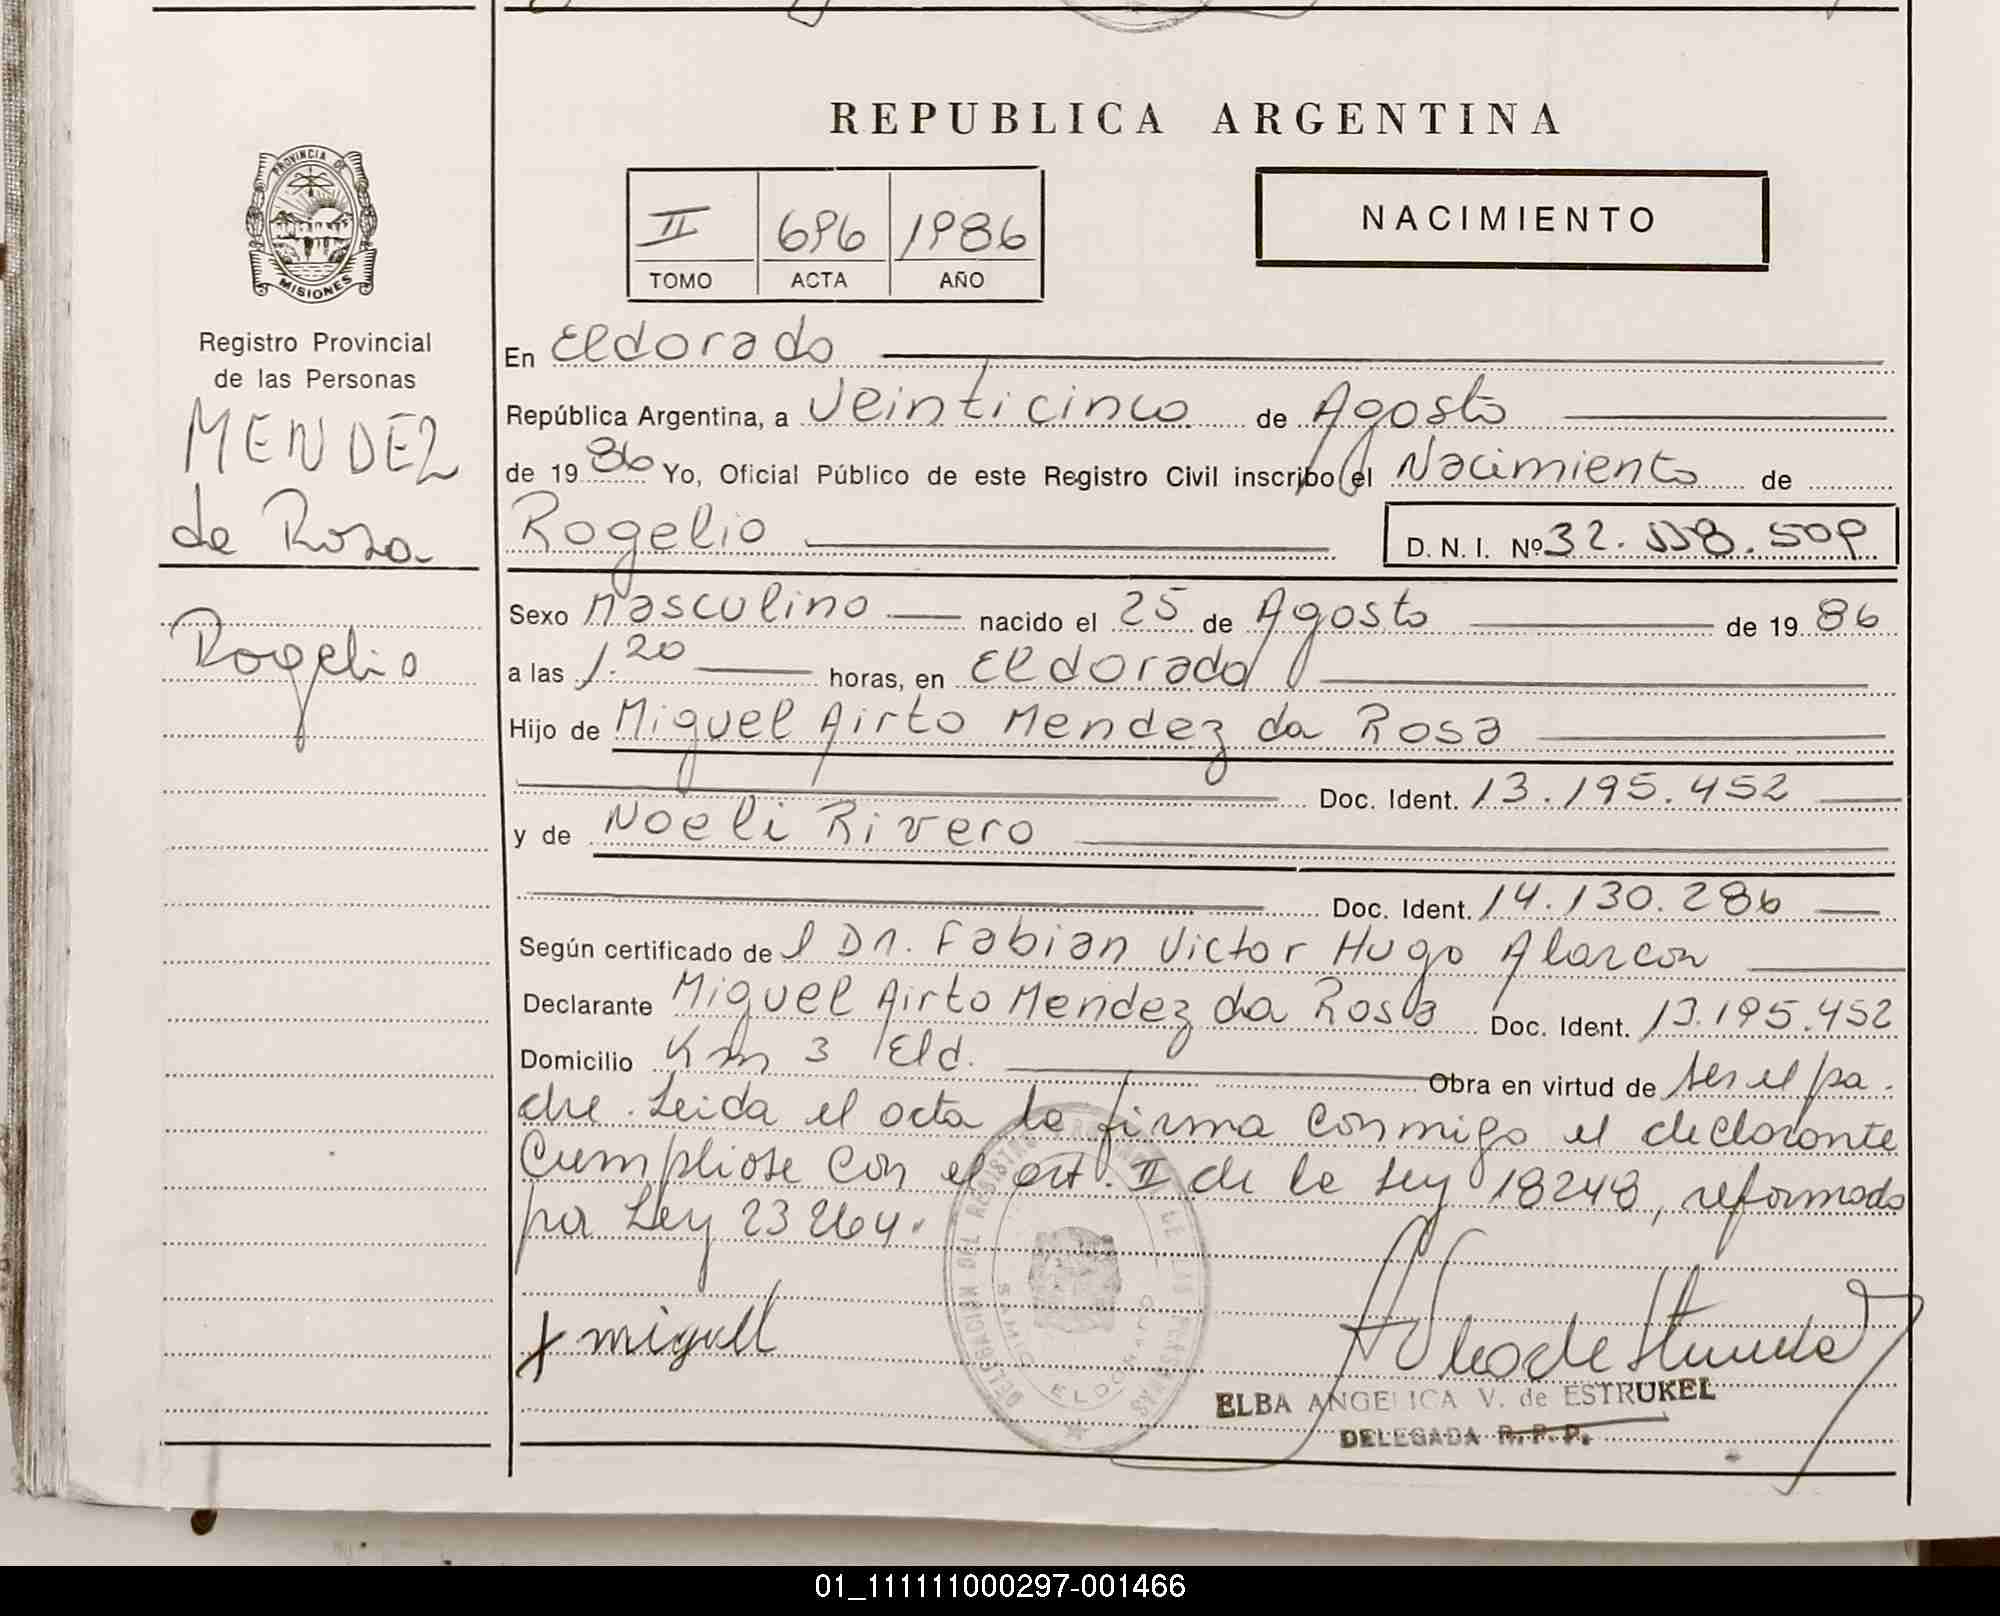 REPUBLICA ARGENTINA
PROVINCIA DE
MISIONES
II 696 1986
TOMO ACTA AÑO
NACIMIENTO
Registro Provincial
de las Personas
MENDEZ
de Rosa
Rogelio
En Eldorado
República Argentina, a Veinticinco de Agosto
de 1986 Yo, Oficial Público de este Registro Civil inscribo el Nacimiento de
Rogelio D. N. I. Nº 32.558.509
Sexo Masculino nacido el 25 de Agosto de 1986
a las 1.20 horas, en Eldorado
Hijo de Miguel Airto Mendez da Rosa
Doc. Ident. 13.195.452
y de Noeli Rivero
Doc. Ident. 14.130.286
Según certificado del Dr. Fabian Victor Hugo Alarcon
Declarante Miguel Airto Mendez da Rosa Doc. Ident. 13.195.452
Domicilio Km 3 Eld. Obra en virtud de ser el pa
dre. Leida el acta la firma conmigo el declarante
Cumpliose con el art. II de la Ley 18248, reformado
por Ley 23264.
DELEGACION DEL REGISTRO DE LAS PERSONAS
ELDORADO
x miguel
ELBA ANGELICA V. de ESTRUKEL
DELEGADA R.P.P.
01_111111000297-001466